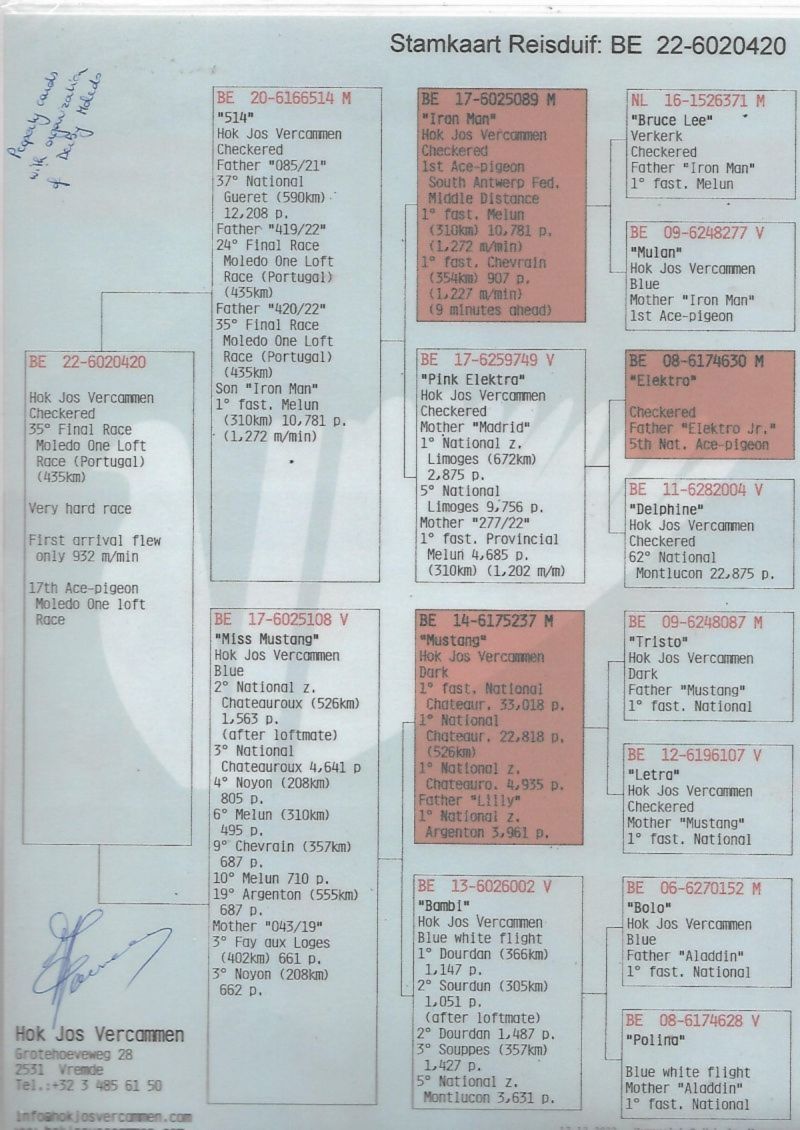 Stamkaart Reisduif: BE 22-6020420
Property cards
with organization
of Derby Moledo
BE 22-6020420
Hok Jos Vercammen
Checkered
35° Final Race
Moledo One Loft
Race (Portugal)
(435km)
Very hard race
First arrival flew
only 932 m/min
17th Ace-pigeon
Moledo One loft
Race
BE 20-6166514 M
"514"
Hok Jos Vercammen
Checkered
Father "085/21"
37° National
Gueret (590km)
12,208 p.
Father "419/22"
24° Final Race
Moledo One Loft
Race (Portugal)
(435km)
Father "420/22"
35° Final Race
Moledo One Loft
Race (Portugal)
(435km)
Son "Iron Man"
1° fast. Melun
(310km) 10,781 p.
(1,272 m/min)
BE 17-6025108 V
"Miss Mustang"
Hok Jos Vercammen
Blue
2° National z.
Chateauroux (526km)
1,563 p.
(after loftmate)
3° National
Chateauroux 4,641 p
4° Noyon (208km)
805 p.
6° Melun (310km)
495 p.
9° Chevrain (357km)
687 p.
10° Melun 710 p.
19° Argenton (555km)
687 p.
Mother "043/19"
3° Fay aux Loges
(402km) 661 p.
3° Noyon (208km)
662 p.
BE 17-6025089 M
"Iron Man"
Hok Jos Vercammen
Checkered
1st Ace-pigeon
South Antwerp Fed.
Middle Distance
1° fast. Melun
(310km) 10,781 p.
(1,272 m/min)
1° fast. Chevrain
(354km) 907 p.
(1,227 m/min)
(9 minutes ahead)
BE 17-6259749 V
"Pink Elektra"
Hok Jos Vercammen
Checkered
Mother "Madrid"
1° National z.
Limoges (672km)
2,875 p.
5° National
Limoges 9,756 p.
Mother "277/22"
1° fast. Provincial
Melun 4,685 p.
(310km) (1,202 m/m)
BE 14-6175237 M
"Mustang"
Hok Jos Vercammen
Dark
1° fast. National
Chateaur. 33,018 p.
1° National
Chateaur. 22,818 p.
(526km)
1° National z.
Chateauro. 4,935 p.
Father "Lilly"
1° National z.
Argenton 3,961 p.
BE 13-6026002 V
"Bambi"
Hok Jos Vercammen
Blue white flight
1° Dourdan (366km)
1,147 p.
2° Sourdun (305km)
1,051 p.
(after loftmate)
2° Dourdan 1,487 p.
3° Souppes (357km)
1,427 p.
5° National z.
Montlucon 3,631 p.
NL 16-1526371 M
"Bruce Lee"
Verkerk
Checkered
Father "Iron Man"
1° fast. Melun
BE 09-6248277 V
"Mulan"
Hok Jos Vercammen
Blue
Mother "Iron Man"
1st Ace-pigeon
BE 08-6174630 M
"Elektro"
Checkered
Father "Elektro Jr."
5th Nat. Ace-pigeon
BE 11-6282004 V
"Delphine"
Hok Jos Vercammen
Checkered
62° National
Montlucon 22,875 p.
BE 09-6248087 M
"Tristo"
Hok Jos Vercammen
Dark
Father "Mustang"
1° fast. National
BE 12-6196107 V
"Letra"
Hok Jos Vercammen
Checkered
Mother "Mustang"
1° fast. National
BE 06-6270152 M
"Bolo"
Hok Jos Vercammen
Blue
Father "Aladdin"
1° fast. National
BE 08-6174628 V
"Polina"
Blue white flight
Mother "Aladdin"
1° fast. National
Hok Jos Vercammen
Grotehoeveweg 28
2531 Vremde
Tel.:+32 3 485 61 50
info@hokjosvercammen.com
www.hokjosvercammen.com